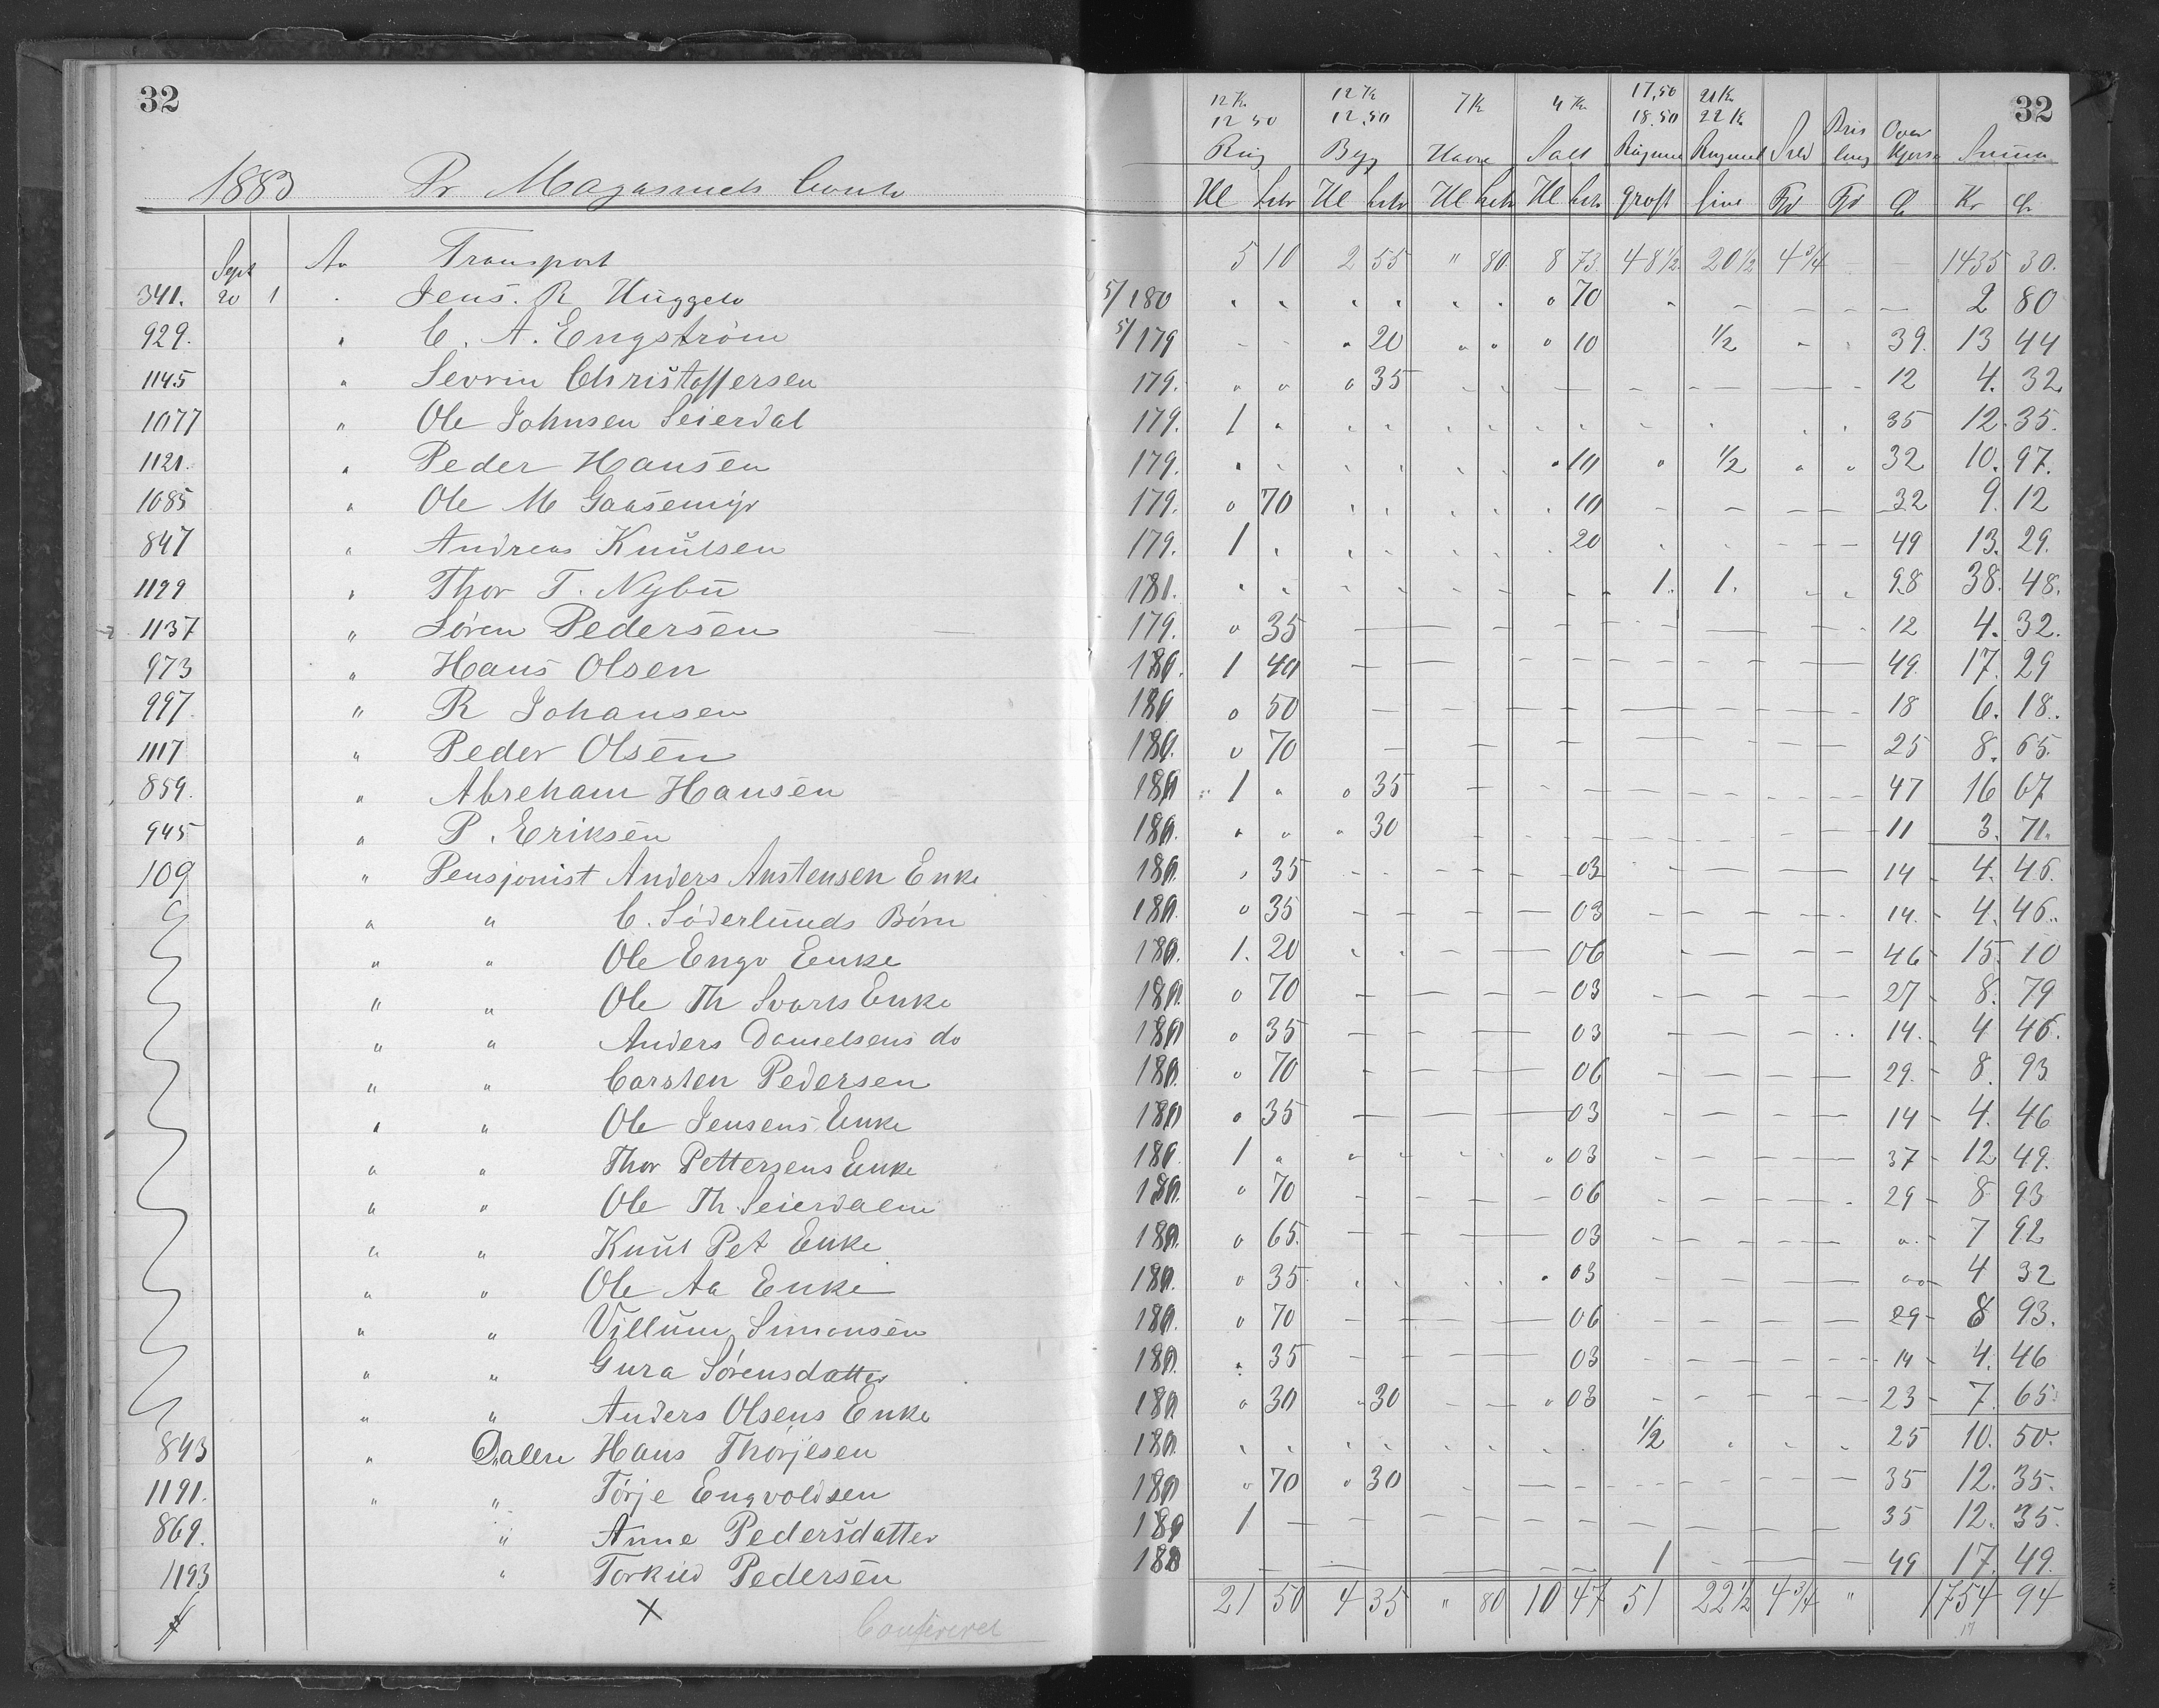 32
1883 Pr Magasinets Conto
12 Kr 12 Kr 7 Kr 4 Kr 17,50 21 Kr 32
12 50 12,50 18.50 22 Kr
Rug Byg Havre Salt Rugmeel Rugmeel Sild Brisling Overkjørs Summa
Hl Litr Hl Litr Hl Litr Hl Litr groft fine Td Td Ø Kr Ø
Sept Av Transport 5 10 2 55 " 80 8 73 48 1/2 20 1/2 4 3/4 — — 1435 30.
341. 20 1 Jens. R. Huggelv 5/180 70 2 80
929. " C. A. Engström 5/179 20 10 1/2 39 13 44
1145 " Sevrin Christoffersen 179. 35 12 4. 32
1077 " Ole Johnsen Seierdal 179. 1 35 12. 35.
1121. " Peder Hansen 179. 10 1/2 32 10. 97.
1085 " Ole M Gaasemyr 179. 70 10 32 9. 12
847 " Andreas Knutsen 179. 1 20 49 13. 29.
1199 " Thor T. Nybu 181. 1. 1. 98 38. 48.
1137 " Søren Pedersen 179. 35 12 4. 32.
973 " Hans Olsen 180. 1 40 49 17. 29
997 " R Johansen 180 50 18 6. 18.
1117 " Peder Olsen 180. 70 25 8. 65.
859. " Abreham Hansen 180 1 35 47 16 67
945 " P. Eriksen 180. 30 11 3. 71.
109 " Pensjonist Anders Anstensen Enke 180. 35 03 14 4. 46.
" " C. Søderlunds Børn 180. 35 03 14. 4. 46.
" " Ole Engv Enke 180. 1. 20 06 46 15. 10
" " Ole Th Svarts Enke 180. 70 03 27 8. 79
" " Anders Danielsens do 180 35 03 14. 4 46.
" " Carsten Pedersen 180. 70 06 29. 8. 93
" " Ole Jensens Enke 180 35 03 14 4. 46
" " Thor Pettersens Enke 180. 1 03 37 12 49.
" " Ole Th. Seierdalen 180. 70 06 29 8 93
" " Knut Pet Enke 180. 65. 03 7 92
" " Ole Aa Enke 180. 35 03 4 32
" " Villum Simonsen 180. 70 06 29 8 93.
" " Gura Sørensdatter 180. 35 03 14 4. 46
" " Anders Olsens Enke 180 30 30 03 23 7. 65.
843 " Dalen Hans Thorjesen 180. 1/2 25 10. 50.
1191. " " Torje Engvoldsen 180 70 30 35 12. 35.
869. " Anne Pedersdatter 180 1 35 12. 35.
1193 " Torkild Pedersen 180 1 49 17. 49.
X 21 50 4 35 " 80 10 47 51 22 1/2 4 3/4 " 1754 94
Confereret 17